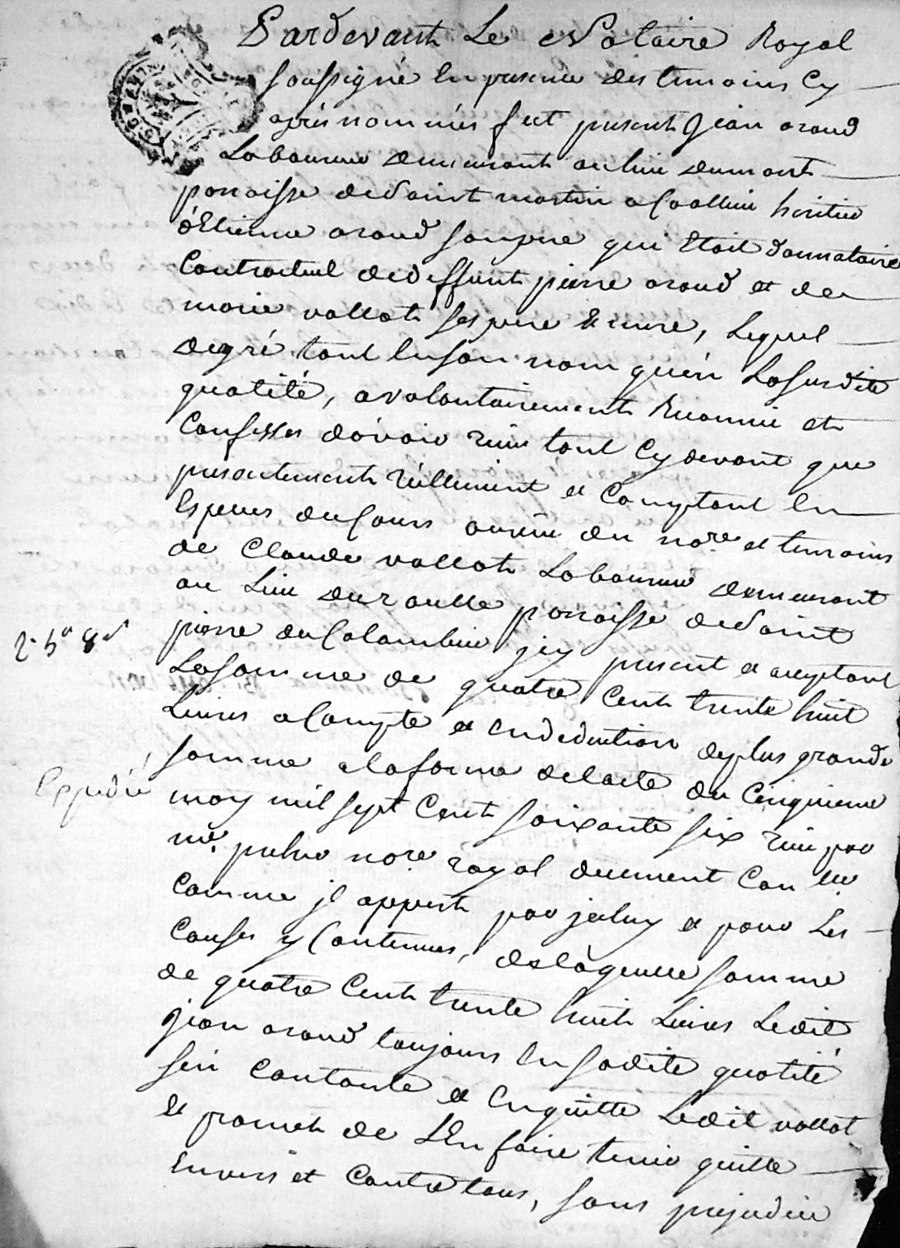 Pardevant Le Notaire Royal
soussigné En presence des temoins Cy
après nommés fut present Jean araud
Labaume demeurant au lieu dumont
parroisse de Saint martin a Coallieu heritier
d'Etienne araud son pere qui Etoit donnataire
Contractuel de deffunt pierre araud et de
marie vallot ses pere Et mere, Lequel
de gré tant En son nom qu'en La susdite
qualité, a volontairement Reconnu et
Confessé d'avoir reçu tant Cy devant que
presentement réellement et Comptant En
Especes du Cours au vû du nore. et temoins
de Claude vallot Labaume demeurant
au Lieu du parroisse de Saint
pierre de Colombier jcy present et acceptant
La somme de quatre Cent trente huit
Livres a Compte et en deduction de plus grande
somme a la forme de lacte du Cinquieme
may mil sept Cent soixante six reçu par
me. nore. royal duement Con llé.
Comme jl appert par jceluy et pour Les
Causes y Contenues, de laquelle somme
de quatre Cent trente huit Livres Ledit
jean araud toujours En sadite qualité
sen Contente et En quitte Ledit vallot
Et promet de L'En faire tenir quitte
Envers et Contre tous, sans prejudice
2# 5s 8d
Expedié